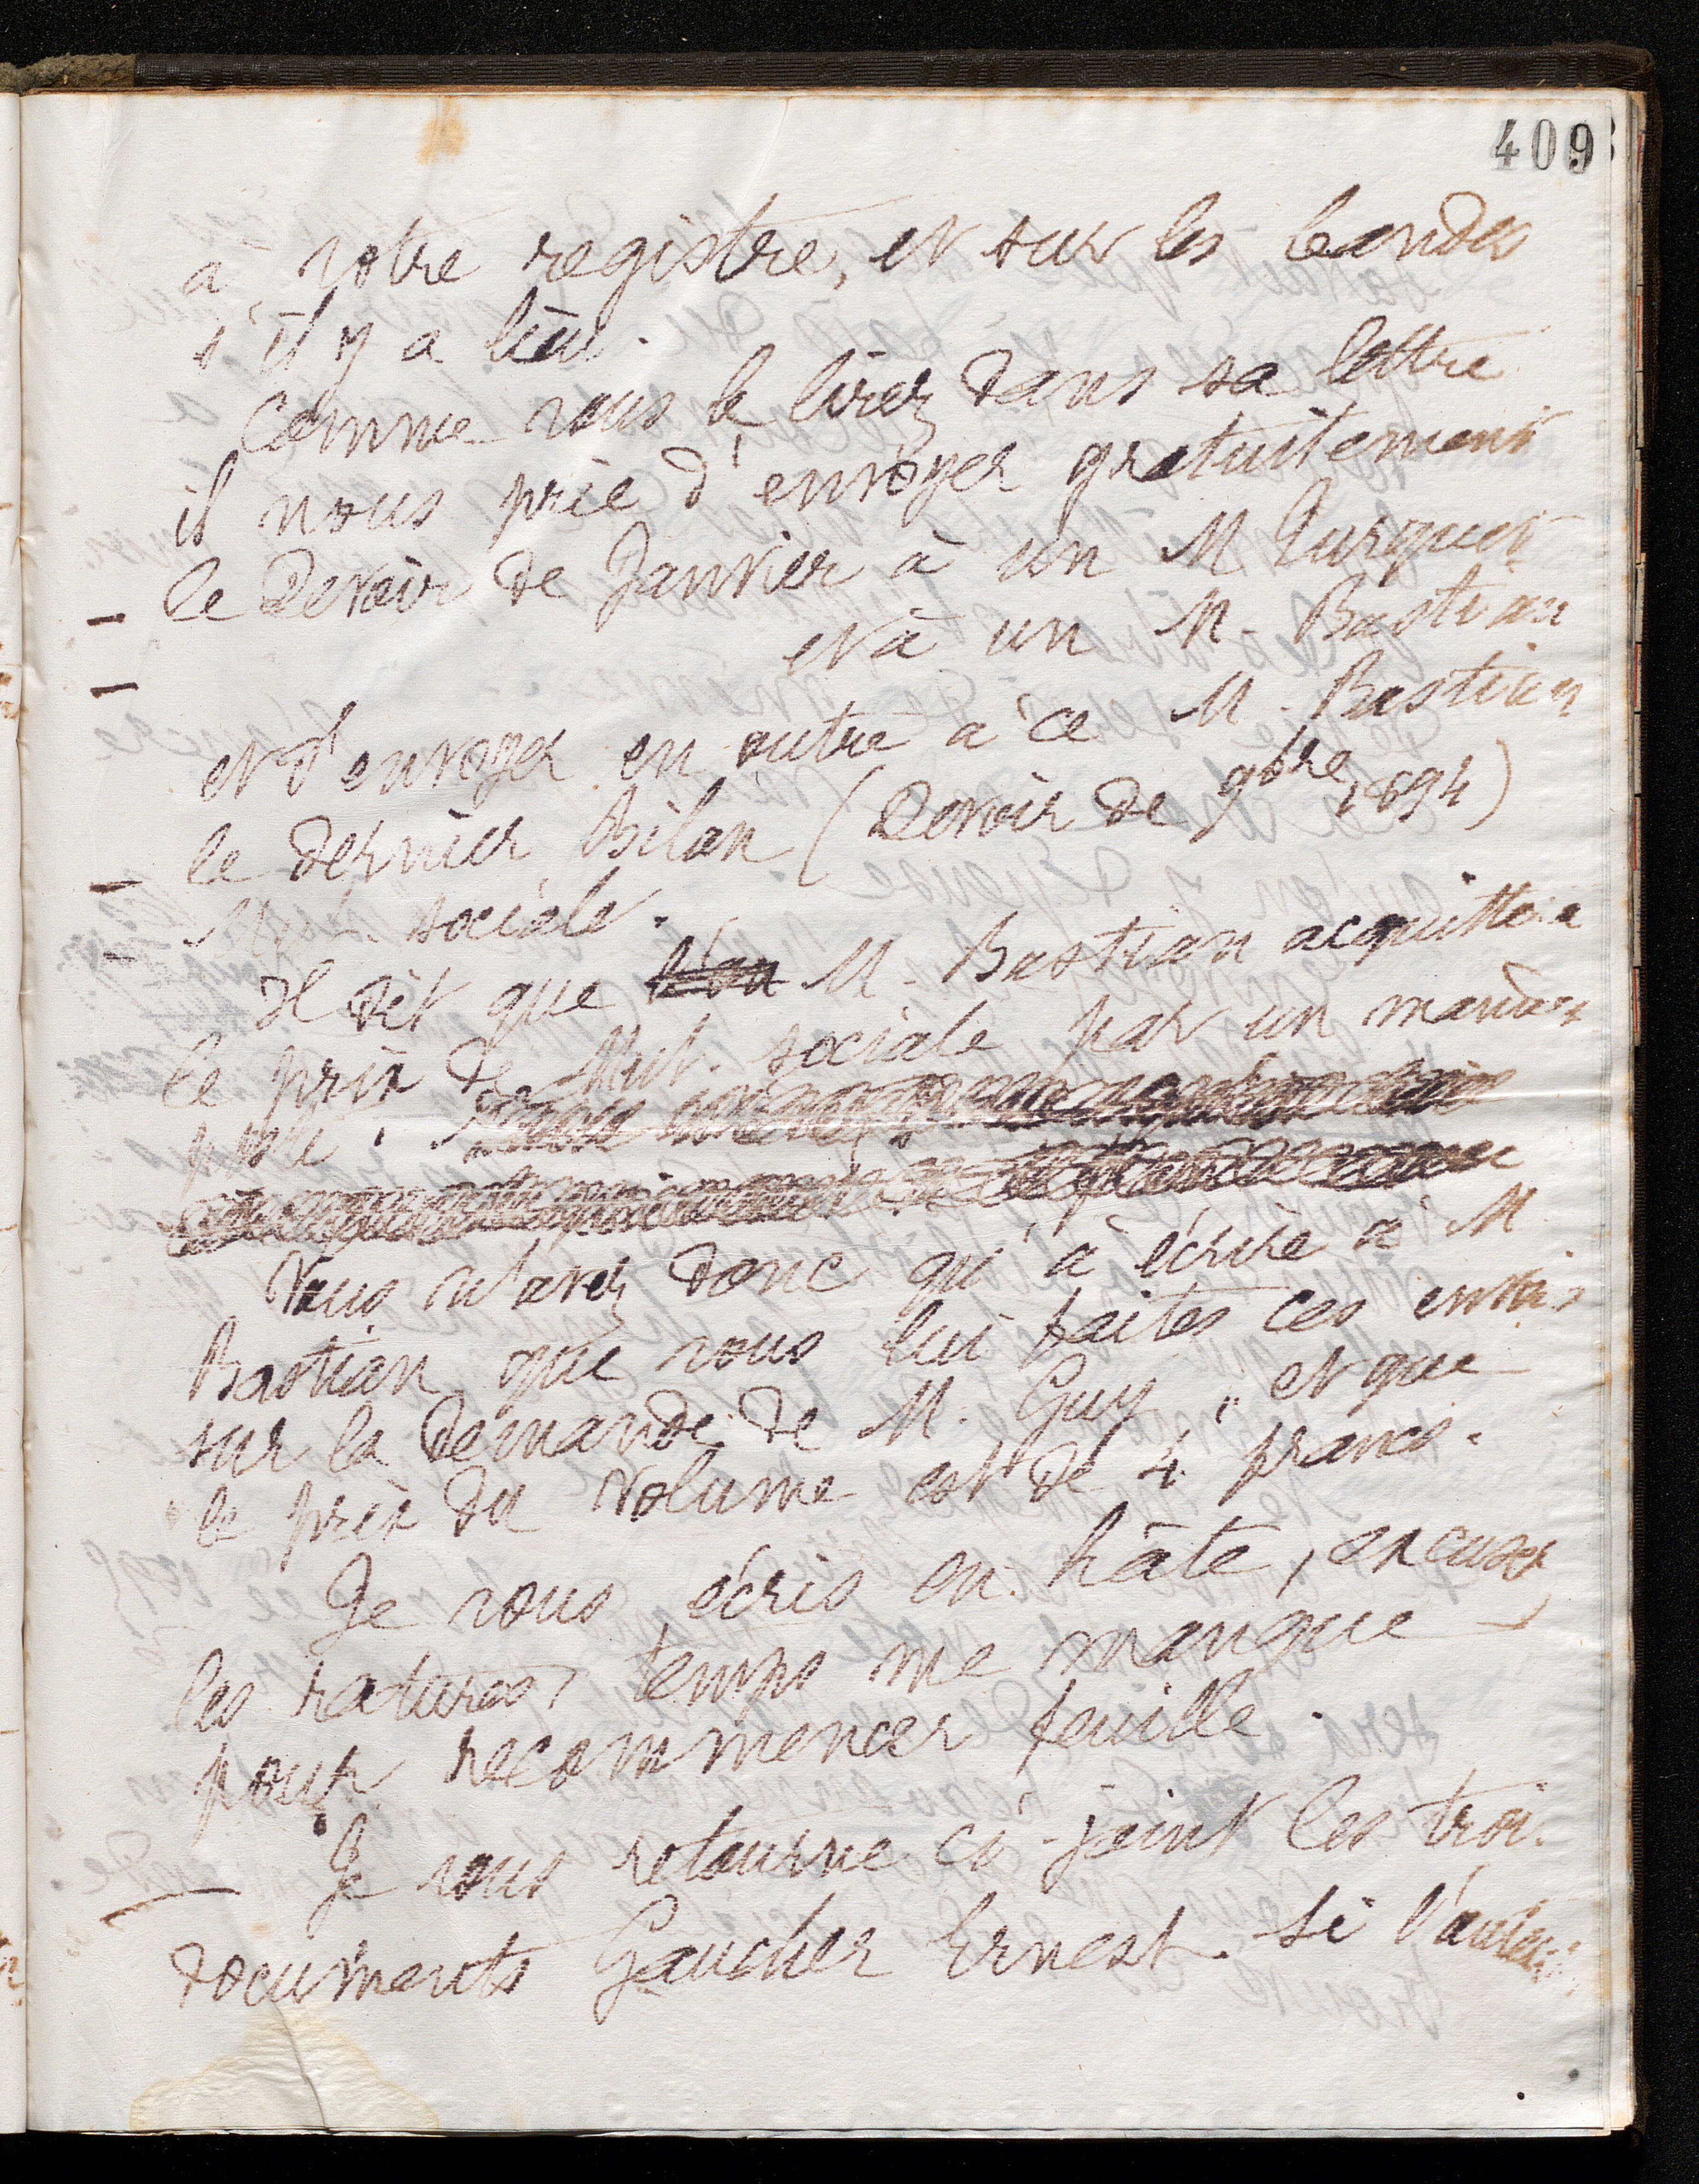 409
à votre registre, et sur les bandes
s'il y a lieu.
Comme vous le lirez dans sa lettre
il nous prie d'envoyer gratuitement
le Devoir de Janvier à un M Turquet
et à un M. Bastian
et d'envoyer en outre à ce M. Bastian
le dernier Bilan (Devoir de 9bre 1894)
Mut. sociale.
Il dit que M. Bastian acquittera
le prix de Mut. sociale par un mandat
poste.
Vous n'avez donc qu'à écrire à M
Bastian que vous lui faites ces envois
sur la demande de M. Guy, et que
le prix du volume est de 4 francs.
Je vous écris en hâte, excusez
les ratures, temps me manque
pour recommencer feuille.
Je vous retourne ci-joint les trois
documents Gaucher Ernest. Si